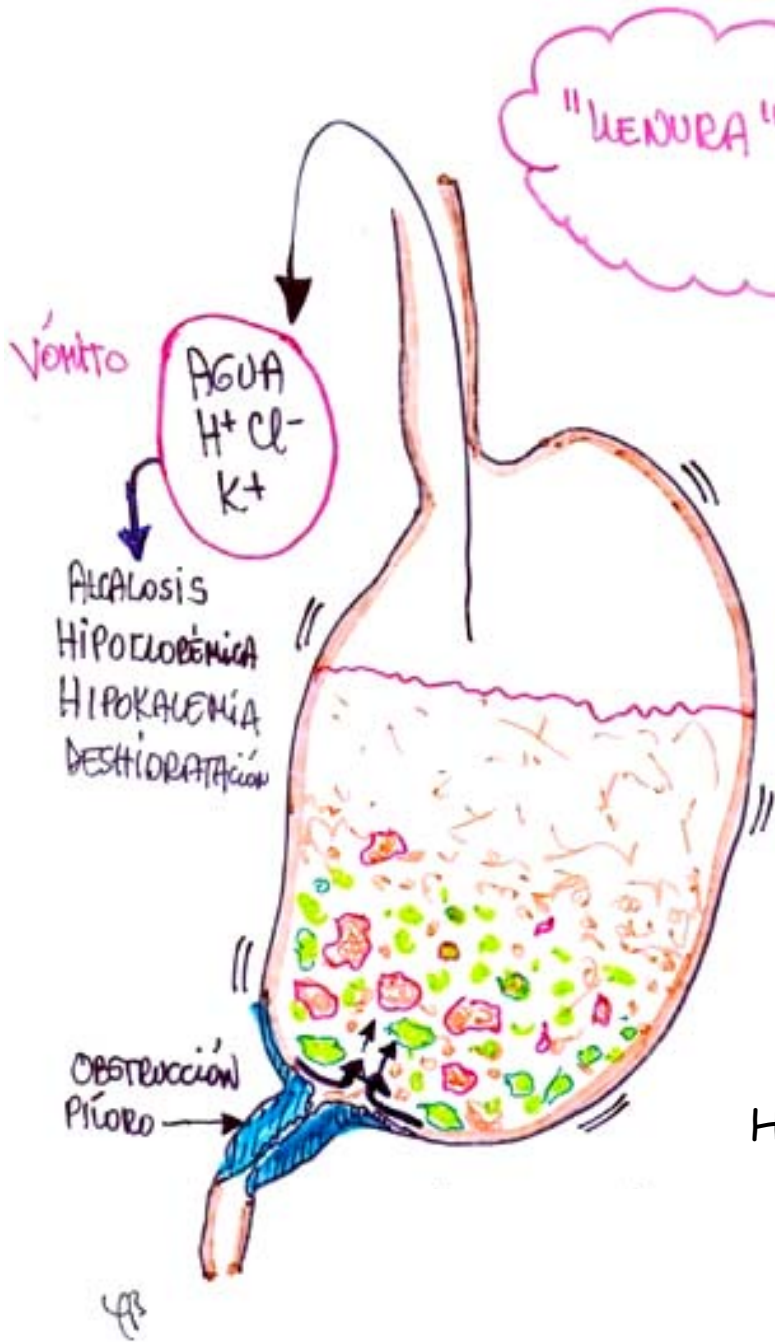 "LLENURA"
VÓMITO
AGUA
H+ Cl-
K+
ALCALOSIS
HIPOCLORÉMICA
HIPOKALEMIA
DESHIDRATACIÓN
OBSTRUCCIÓN
PÍLORO
H